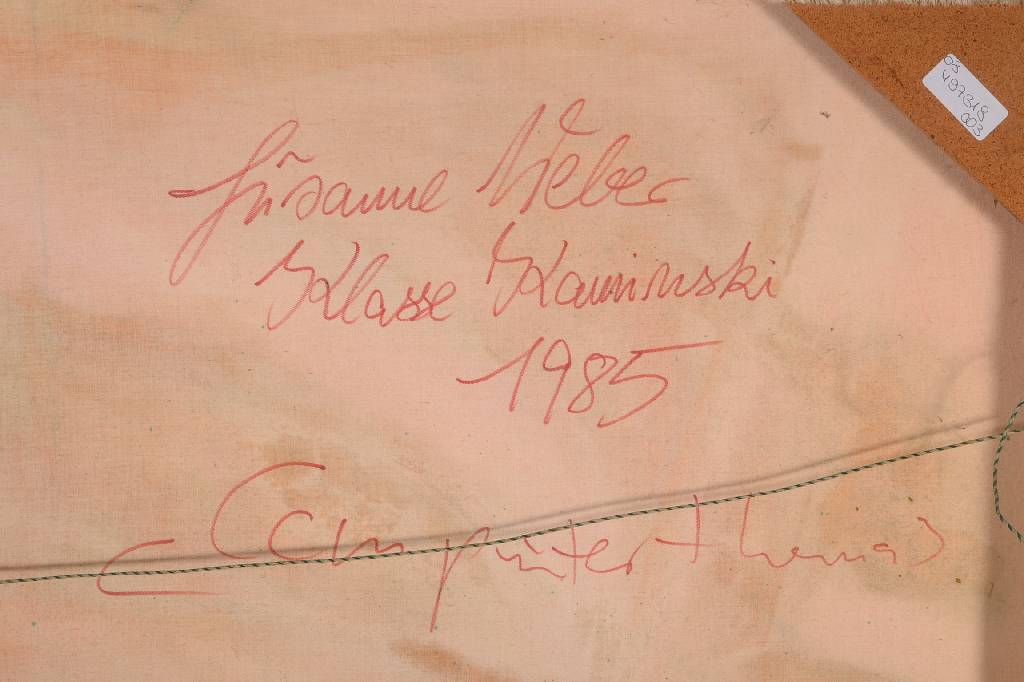 03
497318
003
Susanne Weber
Klasse Kaminski
1985
Computerthomas